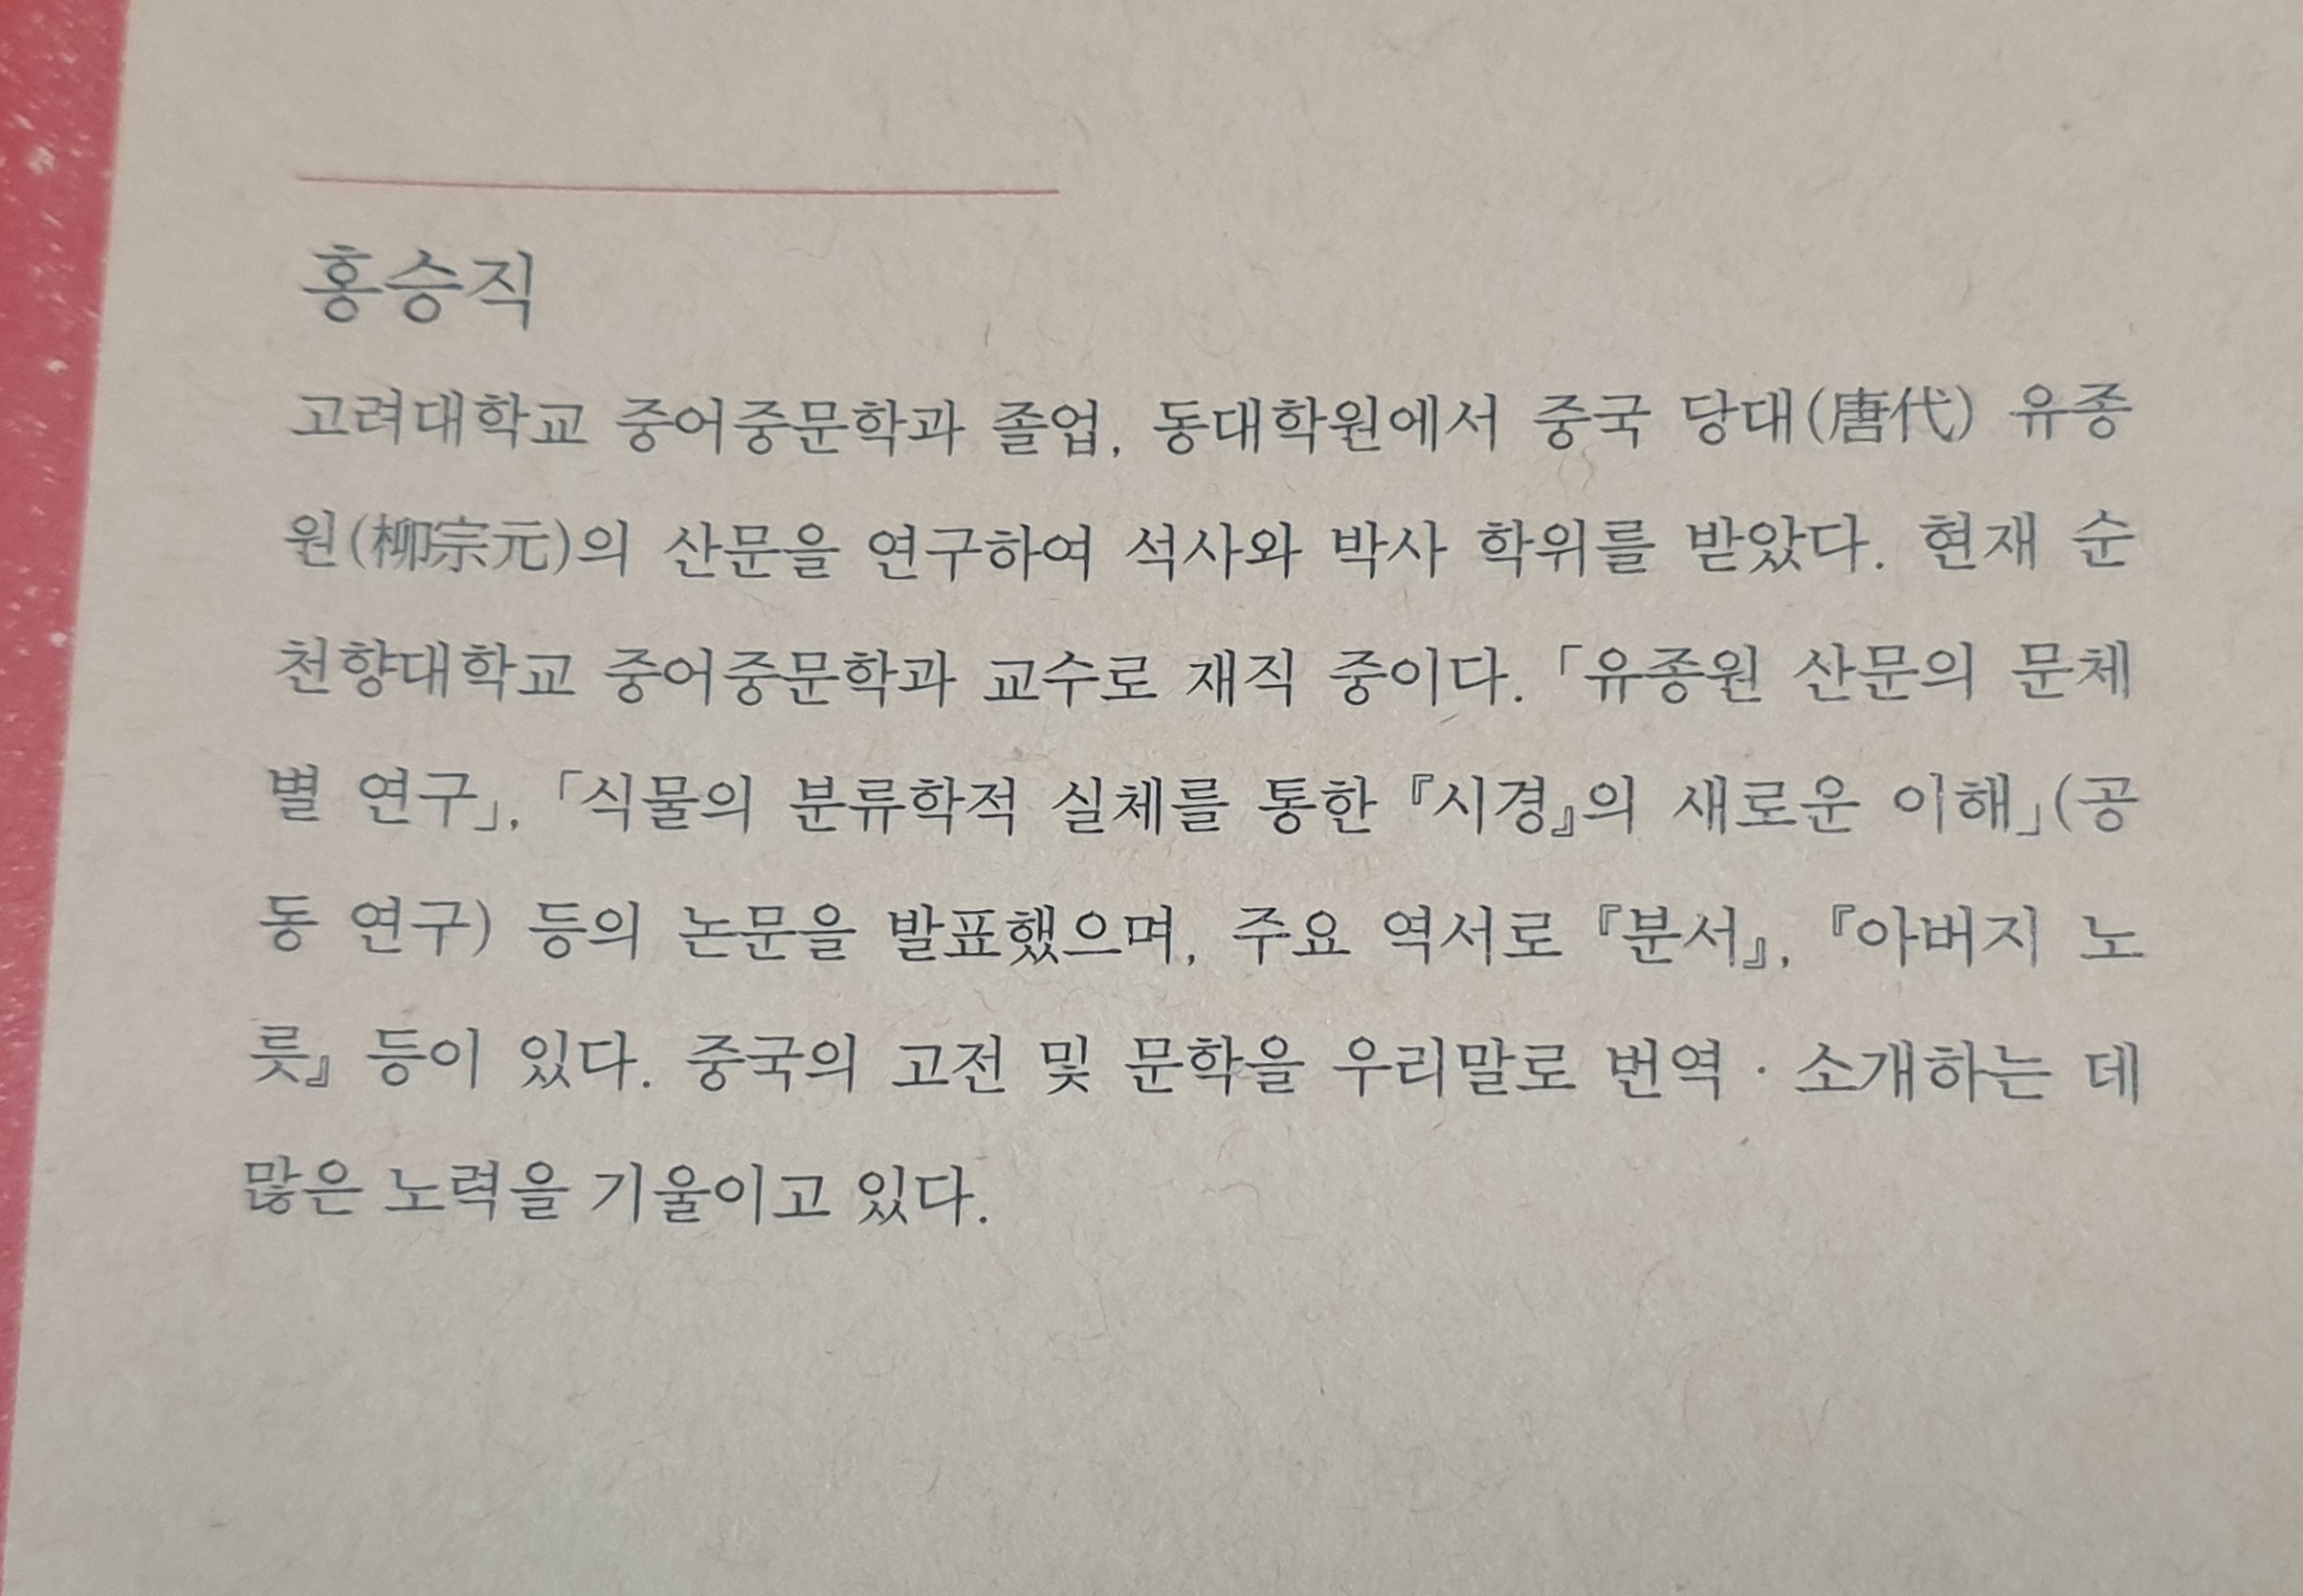 홍승직
고려대학교 중어중문학과 졸업, 동대학원에서 중국 당대(唐代) 유종
원(柳宗元)의 산문을 연구하여 석사와 박사 학위를 받았다. 현재 순
천향대학교 중어중문학과 교수로 재직 중이다. 「유종원 산문의 문체
별 연구」, 「식물의 분류학적 실체를 통한 『시경』의 새로운 이해」(공
동 연구) 등의 논문을 발표했으며, 주요 역서로 『분서』, 『아버지 노
릇』 등이 있다. 중국의 고전 및 문학을 우리말로 번역 · 소개하는 데
많은 노력을 기울이고 있다.